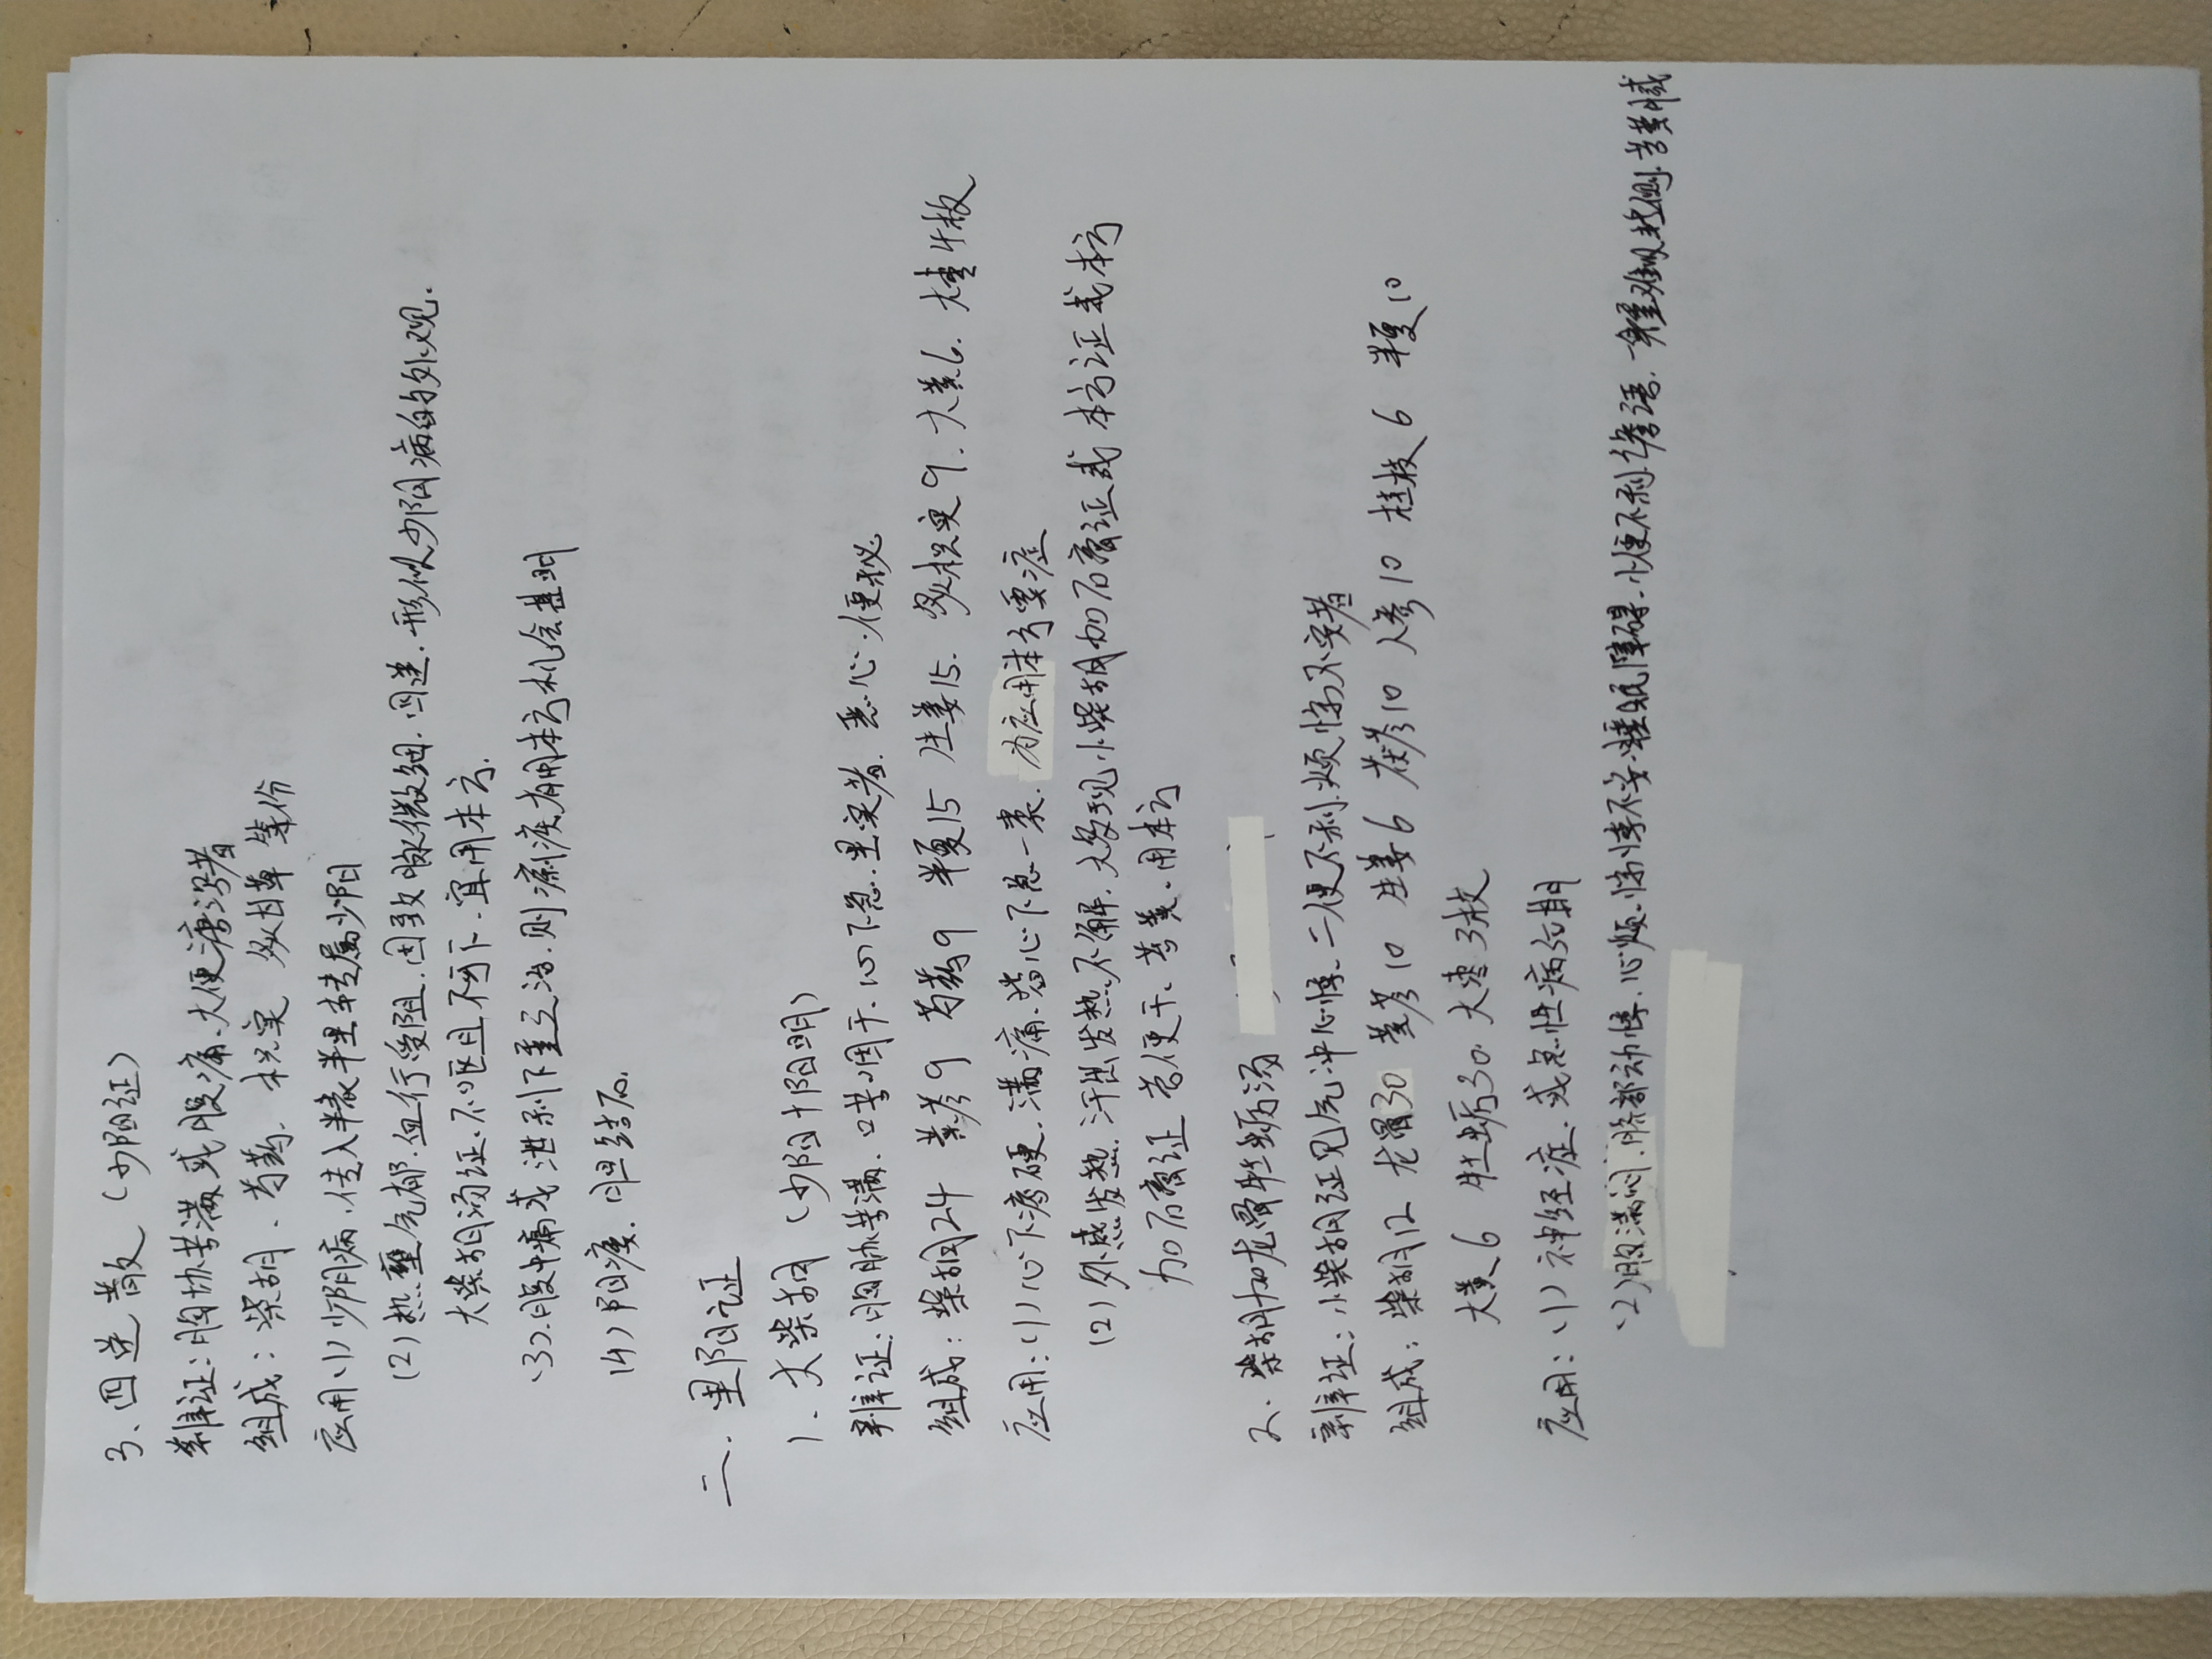 3、四逆散（少阳证）
辨证：胸协苦满或腹痛、大便溏泻者
组成：柴胡、芍药、枳实 炙甘草 等份
应用（1）少阴病，传入半表半里 转属少阳
（2）热壅气郁、血行受阻、因致脉微细、四逆、形似少阴病的外观.
大柴胡汤证、不呕且不可下、宜用本方.
（3）腹中痛或泄利下重之治、则痢疾有用本方机会甚明
（4）阳痿、胆结石.
二、里阳证
1、大柴胡（少阳＋阳明）
辨证：胸胁苦满、口苦咽干、心下急、里实者. 恶心、便秘
组成：柴胡24 黄芩9 芍药9 半夏15 生姜15. 炙枳实9. 大黄6. 大枣4枚
应用：（1）心下痞硬、满痛、诸心下急一类. 为应用本方要症
（2）外感发热、汗出发热、不解、大多现小柴胡加石膏证或本方证或本方
加石膏证 若便干、苔黄、用本方
2、柴胡加龙骨牡蛎汤
辨证：小柴胡证见气冲心悸、二便不利、烦惊不安者
组成：柴胡12 龙骨30 黄芩10 生姜6 茯苓10 人参10 桂枝6 半夏10
大黄6 牡蛎30. 大枣3枚
应用：（1）神经症、或急性病初期
（2）胸满闷、脐部动悸、心烦、惊悸不安、睡眠障碍、小便不利、谵语、身重难以转侧、苔黄腻